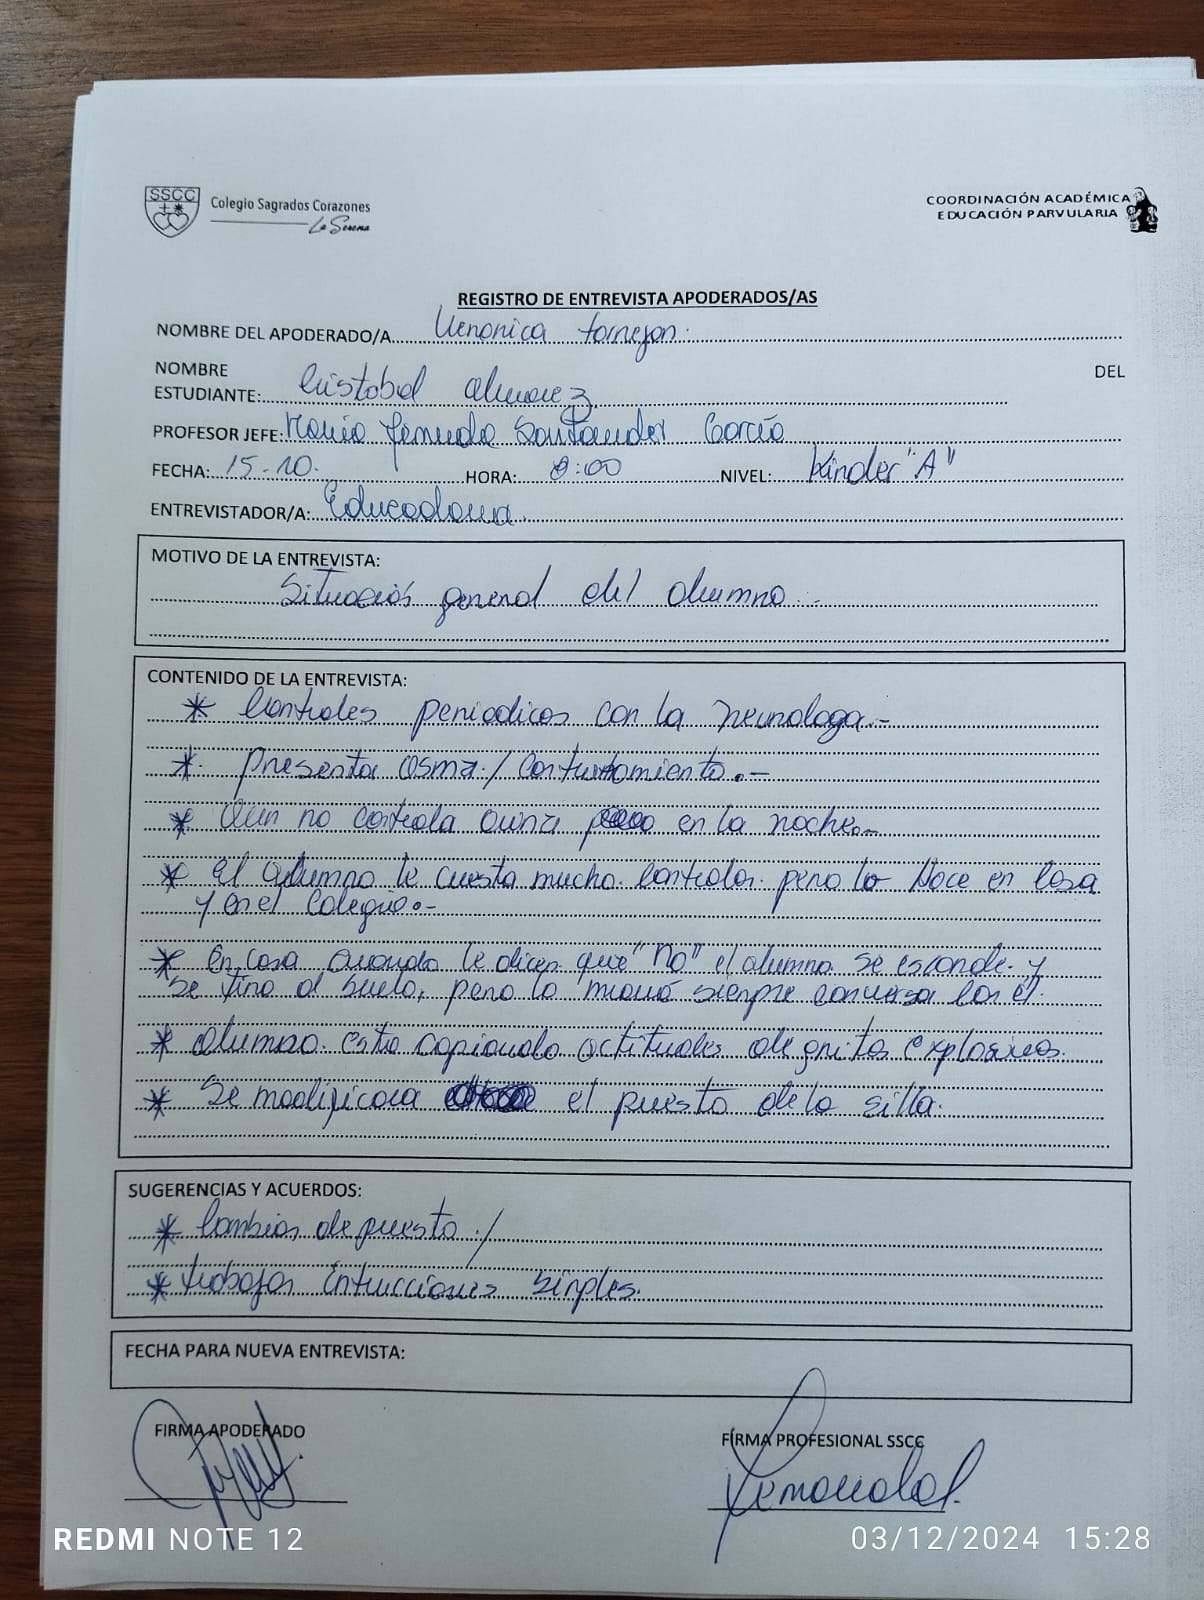 SSCC
Colegio Sagrados Corazones
La Serena
COORDINACIÓN ACADÉMICA
EDUCACIÓN PARVULARIA
REGISTRO DE ENTREVISTA APODERADOS/AS
NOMBRE DEL APODERADO/A Veronica tornejon.
NOMBRE DEL
ESTUDIANTE: Cristobal alvarez
PROFESOR JEFE: Maria fernanda Santander García
FECHA: 15-10. HORA: 8:00 NIVEL: Kinder "A"
ENTREVISTADOR/A: Educadora.
MOTIVO DE LA ENTREVISTA:
Situación general del alumno.-
CONTENIDO DE LA ENTREVISTA:
* Controles periodicos con la neurologa.-
* Presenta asma./ .-
* Aun no controla orina en la noche.-
* El alumno le cuesta mucho. Controlar. pero lo Hace en Casa
y en el Colegio.-
* En casa cuando le dicen que "No" el alumno se esconde. y
se tira al suelo, pero la mamá siempre conversa con el.
* Alumno. esta copiando actitudes de gritos explosivos.
* Se modificara el puesto de la silla.
SUGERENCIAS Y ACUERDOS:
* Cambios de puesto./
* trabajos simples.
FECHA PARA NUEVA ENTREVISTA:
FIRMA APODERADO
FIRMA PROFESIONAL SSCC
REDMI NOTE 12
03/12/2024 15:28